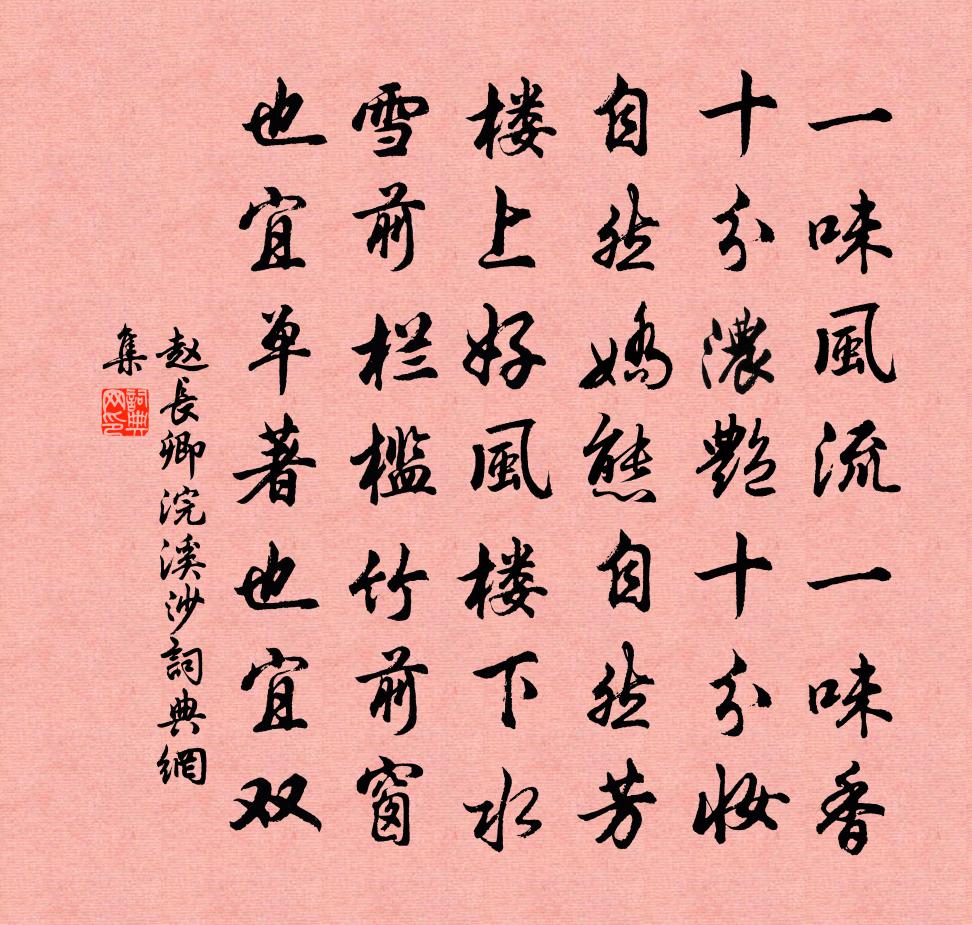 一味風流一味香
十分濃艷十分妝
自然嬌態自然芳
楼上好風楼下水
雪前栏檻竹前窗
也宜单著也宜双
赵長卿浣溪沙詞典網
集
詞典網印